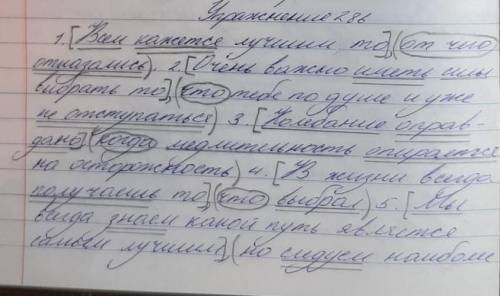 Упражнение 286
1. [Всем кажется лучшим то], (от чего
отказались). 2. [Очень важно иметь силы
выбрать то], (что тебе по душе и уже
не отступаться) 3. [Колебание оправ-
дано] (когда медлительность опирается
на осторожность) 4. [В жизни всегда
получаешь то], (что выбрал) 5. [Мы
всегда знаем какой путь является
самым лучшим] (но следуем наиболе